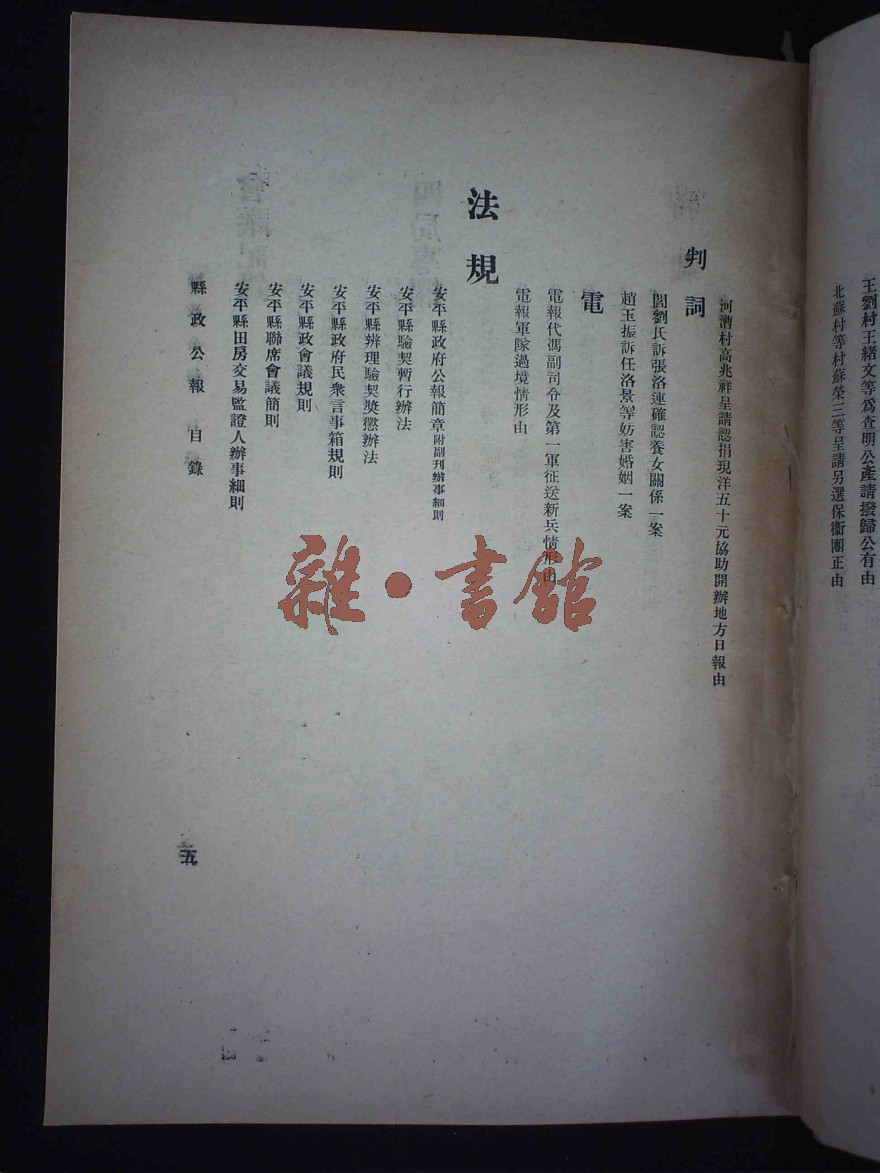 王劉村王緒文等爲查明公產請撥歸公有由
北蘇村等村蘇榮三等呈請另選保衞團正由
河漕村高兆祥呈請認捐現洋五十元協助開辦地方日報由
判詞
閻劉氏訴張洛連確認養女關係一案
趙玉振訴任洛景等妨害婚姻一案
電
電報代馮副司令及第一軍征送新兵情形由
電報軍隊過境情形由
法規
安平縣政府公報簡章附副刊辦事細則
安平縣驗契暫行辦法
安平縣辨理驗契獎懲辦法
安平縣政府民衆言事箱規則
安平縣政會議規則
安平縣聯席會議簡則
安平縣田房交易監證人辦事細則
縣政公報目錄
五
雜·書館